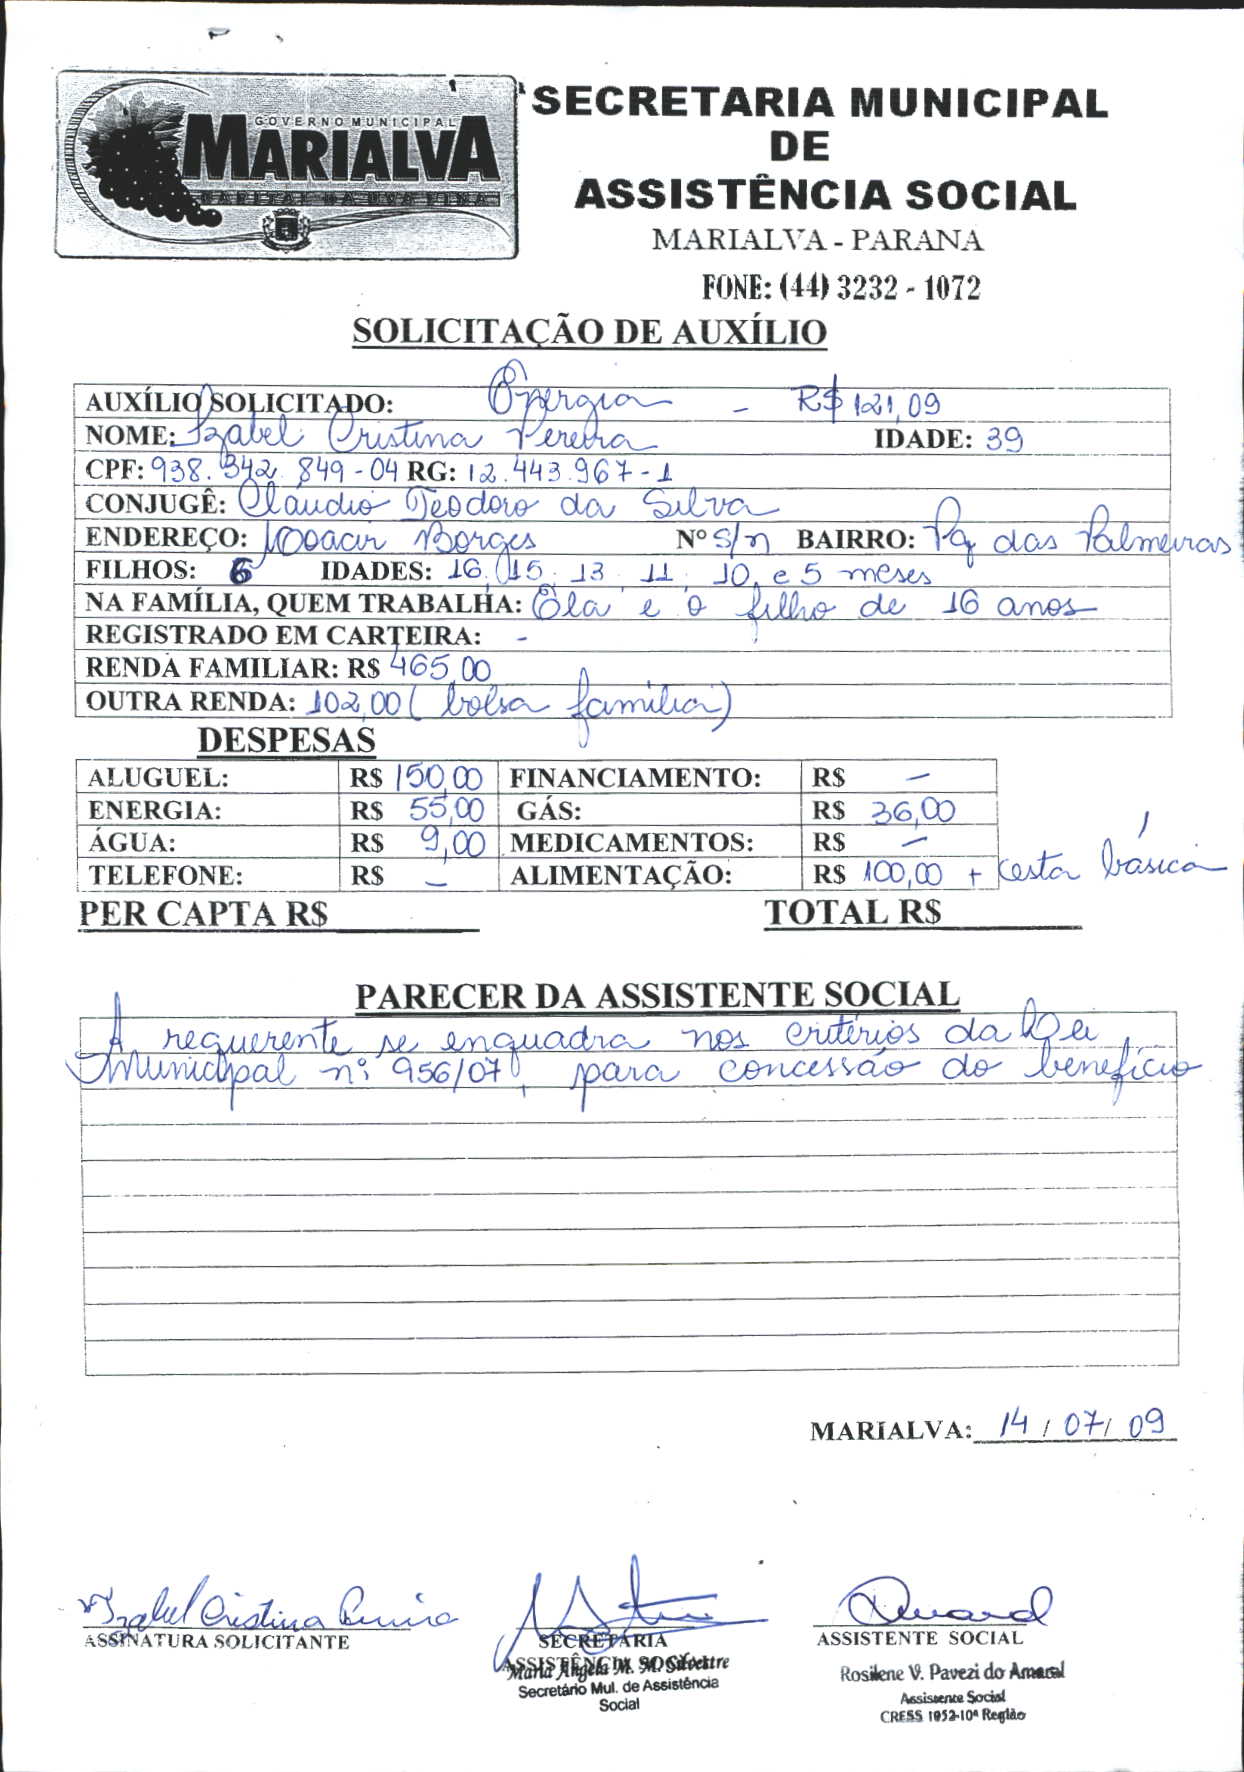 GOVERNO MUNICIPAL
MARIALVA
CAPITAL DA UVA FINA
SECRETARIA MUNICIPAL
DE
ASSISTÊNCIA SOCIAL
MARIALVA - PARANA
FONE: (44) 3232 - 1072
SOLICITAÇÃO DE AUXÍLIO
AUXÍLIO SOLICITADO: Energia - R$ 121,09
NOME: Izabel Cristina Pereira IDADE: 39
CPF: 938.342.849-04 RG: 12.443.967-1
CONJUGÊ: Cláudio Teodoro da Silva
ENDEREÇO: Moacir Borges Nº S/n BAIRRO: Pq das Palmeiras
FILHOS: 6 IDADES: 16, 15, 13, 11, 10, e 5 meses
NA FAMÍLIA, QUEM TRABALHA: Ela e o filho de 16 anos
REGISTRADO EM CARTEIRA: -
RENDA FAMILIAR: R$ 465,00
OUTRA RENDA: 102,00 (bolsa família)
DESPESAS
ALUGUEL: R$ 150,00 FINANCIAMENTO: R$ -
ENERGIA: R$ 55,00 GÁS: R$ 36,00
ÁGUA: R$ 9,00 MEDICAMENTOS: R$ -
TELEFONE: R$ - ALIMENTAÇÃO: R$ 100,00 + cesta básica
PER CAPTA R$ TOTAL R$
PARECER DA ASSISTENTE SOCIAL
A requerente se enquadra nos critérios da Lei
Municipal nº 956/07, para concessão do benefício
MARIALVA: 14 / 07 / 09
Izabel Cristina Pereira
ASSINATURA SOLICITANTE
SECRETARIA
ASSISTÊNCIA SOCIAL
Maria Angela M. M. Silvestre
Secretário Mul. de Assistência
Social
ASSISTENTE SOCIAL
Rosilene V. Pavezi do Amaral
Assistente Social
CRESS 1952-10ª Região